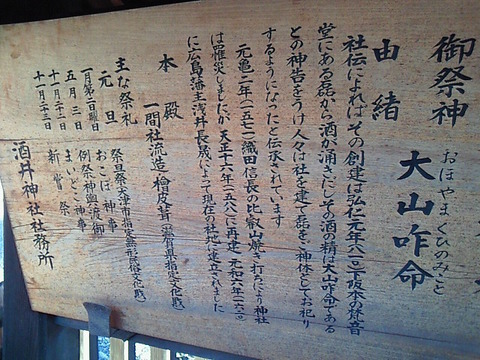 御祭神
おほやまくひのみこと
大山咋命
由緒
社伝によれば、その創建は弘仁元年(八一〇)下阪本の梵音
堂にある磊から酒が涌きだし、その酒の精は大山咋命である
との神告をうけ人々は社を建て磊をご神体としてお祀り
するようになったと伝承されています
元亀二年(一五七一)織田信長の比叡山焼き打ちにより神社
は罹災しましたが天正十六年(一五八八)に再建 元和六年(一六二〇)
に広島藩主浅井長晟によって現在の社地に建立されました
本殿
一間社流造 檜皮葺 (滋賀県指定文化財)
主な祭礼
元旦 祭旦祭(大津市指定無形俗文化財)
一月第二日曜日 おこぼ神事
五月三日 例祭神輿渡御
十一月二十二日 まいどこ神事
十一月二十三日 新嘗祭
酒井神社社務所